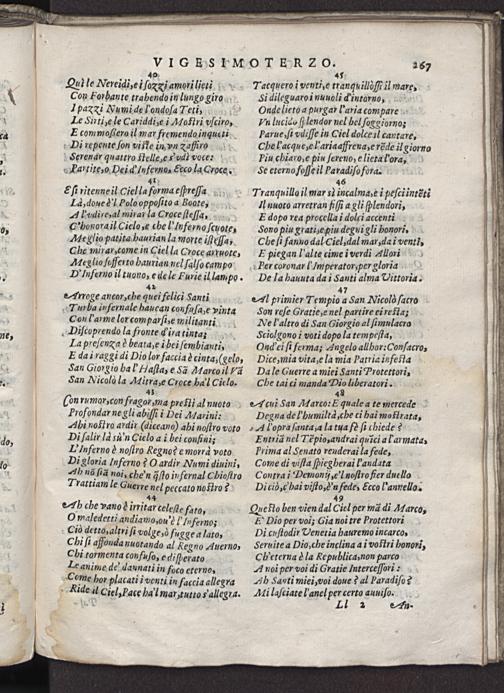 VIGESIMOTERZO. 267
40
Qui le Nereidi, e i sozzi amori lieti
Con Forbante trahendo in lungo giro
I pazzi Numi de l'ondosa Teti,
Le Sirti, e le Cariddi, e i Mostri vsciro,
E commossero il mar fremendo inquieti
Di repente son viste in vn zaffiro
Serenar quattro stelle, e s'vdì voce
Partite, o Dei d'Inferno, Ecco la Croce.
41
E si ritenne il Ciel la forma espressa
Là, doue è'l Polo opposito a Boote,
A l'vdire, al mirar la Croce stessa,
C'honora il Cielo, e che l'Inferno scuote,
Meglio patita haurian la morte istessa,
Che mirar, come in Ciel la Croce arruote,
Meglio sofferto haurian nel salso campo
D'Inferno il tuono, e de le Furie il lampo.
42
Arroge ancor, che quei felici Santi
Turba infernale hauean confusa, e vinta
Con l'arme lor comparsi, e militanti
Discoprendo la fronte d'ira tinta;
La presenza è beata, e i bei sembianti,
E da i raggi di Dio lor faccia è cinta, (gelo,
San Giorgio ha l'Hasta, e Sã Marco il Vã
San Nicolò la Mitra, e Croce ha'l Cielo.
43
Con rumor, con fragor, ma presti al nuoto
Profondar ne gli abissi i Dei Marini:
Ahi nostro ardir (diceano) ahi nostro voto
Di salir là sù'n Cielo a i bei confini;
E l'Inferno è nostro Regno? e morrà voto
Di gloria Inferno? O ardir Numi diuini,
Ah nõ siã noi, che'n q̃sto infernal Chiostro
Trattiam le Guerre nel peccato nostro?
44
Ah che vano è irritar celeste fato,
O maledetti andiamo, ou'è l'Inferno;
Ciò detto, altri si volge, ò fugge a lato,
Chi si affonda nuotando al Regno Auerno,
Chi tormenta confuso, e disperato
Le anime de' dannati in foco eterno,
Come hor placati i venti in faccia allegra
Ride il Ciel, Pace ha'l mar, tutto s'allegra.
45
Tacquero i venti, e tranquillòssi il mare,
Si dileguaro i nuuoli d'intorno,
Onde lieto a purgar l'aria compare
Vn lucido splendor nel bel soggiorno;
Parue, si vdisse in Ciel dolce il cantare,
Che l'acque, e l'aria affrena, e rẽde il giorno
Più chiaro, e più sereno, e lieta l'ora,
Se eterno fosse il Paradiso fora.
46
Tranquillo il mar sì incalma, e i pesci intẽti
Il nuoto arrestan fissi a gli splendori,
E dopo rea procella i dolci accenti
Sono piu grati, e piu degni gli honori,
Che si fanno dal Ciel, dal mar, da i venti,
E piegan l'alte cime i verdi Allori
Per coronar l'Imperator, per gloria
De la hauuta da i Santi alma Vittoria.
47
Al primier Tempio a San Nicolò sacro
Son rese Gratie, e nel partire ei resta;
Ne l'altro di San Giorgio al simulacro
Sciolgono i voti dopo la tempesta,
Ond'ei si ferma; Angelo allhor: Consacro,
Dice, mia vita, e la mia Patria infesta
Da le Guerre a miei Santi Protettori,
Che tai ci manda Dio liberatori.
48
A cui San Marco: E quale a te mercede
Degna de l'humiltà, che ci hai mostrata,
A l'opra santa, a la tua fè si chiede?
Entriã nel Tẽpio, andrai quici a l'armata,
Prima al Senato renderai la fede,
Come di vista spiegherai l'andata
Contra i Demonij, e'l nostro fier duello
Di ciò, c'hai visto, è'n fede, Ecco l'annello.
49
Questo ben vien dal Ciel per mã di Marco,
E' Dio per voi; Gia noi tre Protettori
Di custodir Venetia hauremo incarco,
Seruite a Dio, che inclina a i vostri honori,
Ch'eterna è la Republica, non parco
A noi per voi di Gratie Intercessori:
Ah Santi miei, voi doue? al Paradiso?
Mi lasciate l'anel per certo auuiso.
Ll 2 An-